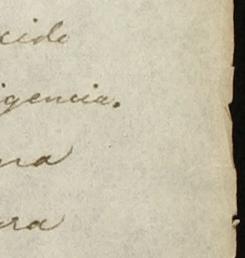 cido
igencia.
na
ra